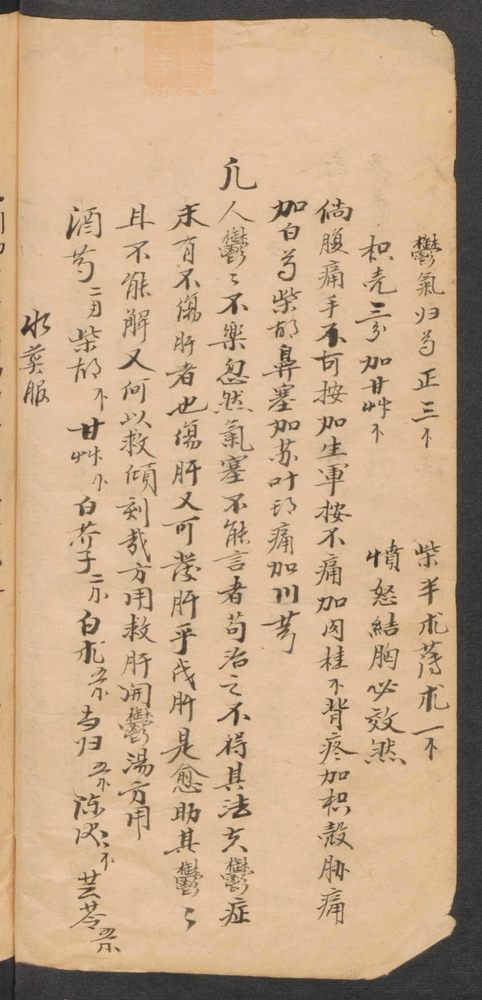 鬱氣归芍正三个 柴半朮薄朮一个
枳壳三分加甘艸个 憤怒結胸必效然
倘腹痛手不可按加生軍按不痛加肉桂个背疼加枳殼胁痛
加白芍柴胡鼻塞加苏叶頭痛加川芎
凡人鬱〻不樂忽然氣塞不能言者苟治之不得其法夫鬱症
未有不傷肝者也傷肝又可發肝乎伐肝是愈助其鬱〻
且不能解又何以救傾刻哉方用救肝開鬱湯方用
酒芍二両柴胡个甘艸个白芥子三个白朮五个当归五个陈皮二个茯苓五个
水煎服